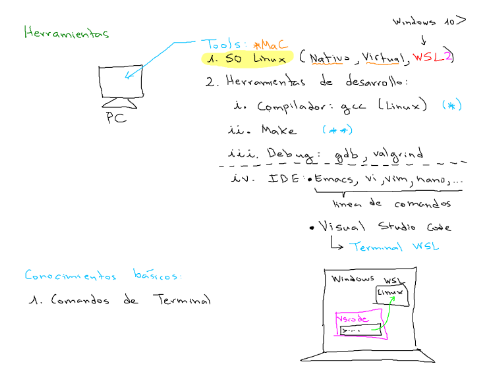 Windows 10>
Herramientas
Tools: *MaC
1. SO Linux (Nativo, Virtual, WSL2)
PC
2. Herramientas de desarrollo:
i. Compilador: gcc (Linux) (*)
ii. Make (**)
iii. Debug: gdb, valgrind
iv. IDE: • Emacs, vi, vim, nano, ...
línea de comandos
• Visual Studio Code
↳ Terminal WSL
Conocimientos básicos:
1. Comandos de Terminal
Windows WSL
Linux
Vscode
>...